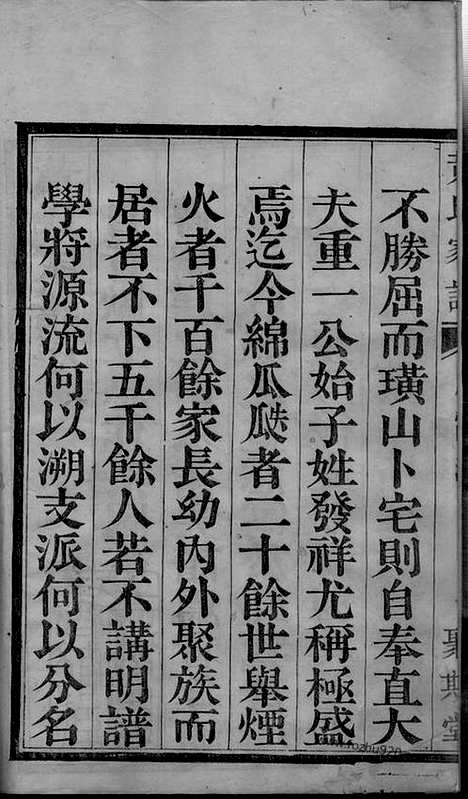 不勝屈而璜山卜宅則自奉直大
夫重一公始子姓發祥尤稱極盛
焉迄今綿瓜瓞者二十餘世舉煙
火者千百餘家長幼內外聚族而
居者不下五千餘人若不講明譜
學將源流何以溯支派何以分名